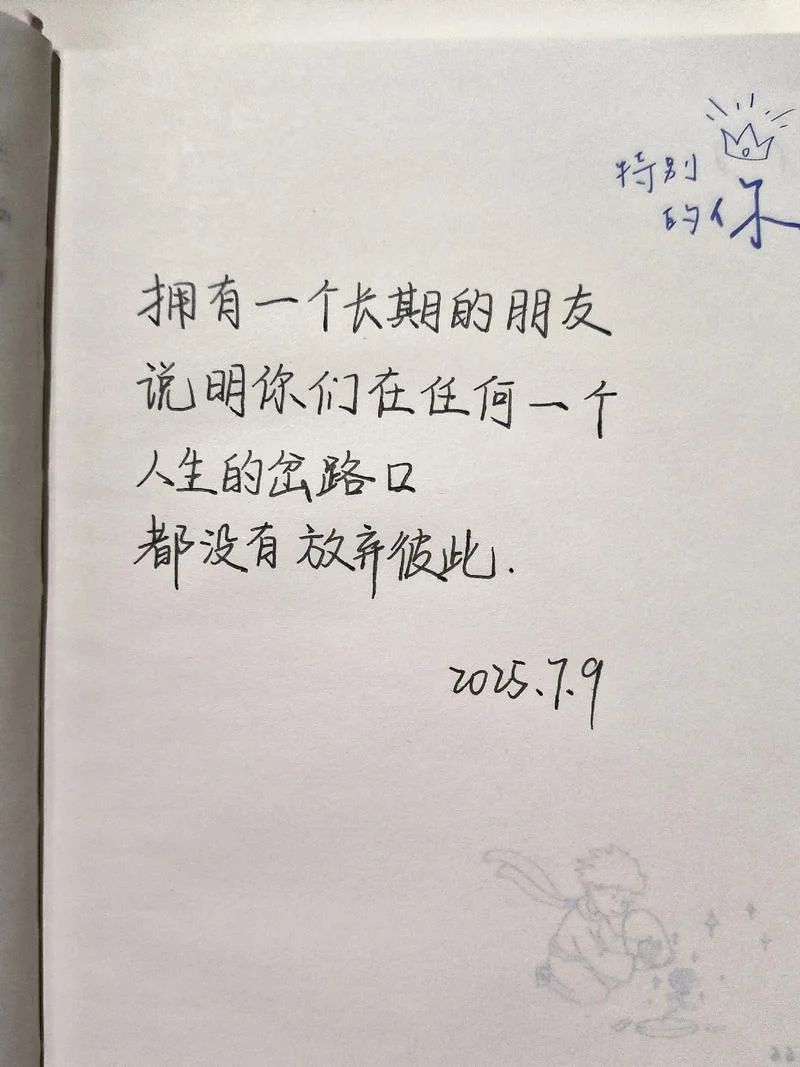 特别
的你
拥有一个长期的朋友
说明你们在任何一个
人生的岔路口
都没有放弃彼此.
2025.7.9